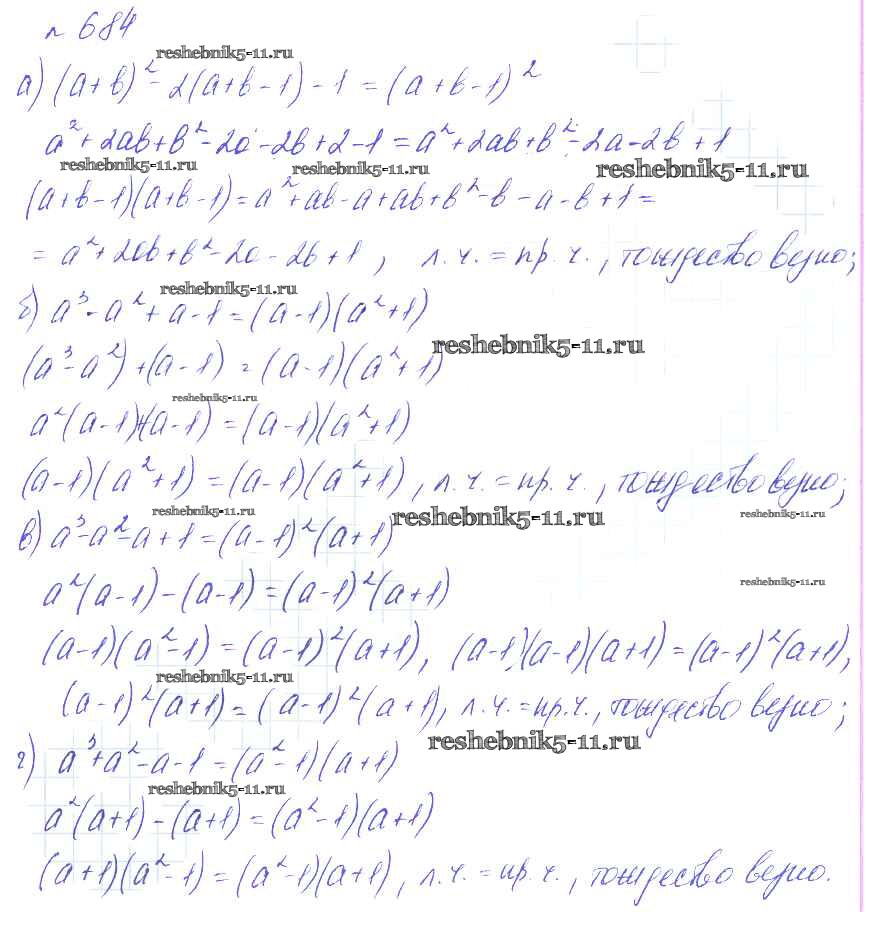 № 684
reshebnik5-11.ru
а) (a+b)² - 2(a+b-1) - 1 = (a+b-1)²
a² + 2ab + b² - 2a - 2b + 2 - 1 = a² + 2ab + b² - 2a - 2b + 1
reshebnik5-11.ru reshebnik5-11.ru reshebnik5-11.ru
(a+b-1)(a+b-1) = a² + ab - a + ab + b² - b - a - b + 1 =
= a² + 2ab + b² - 2a - 2b + 1, л.ч. = пр.ч., тождество верно;
reshebnik5-11.ru
б) a³ - a² + a - 1 = (a-1)(a²+1)
reshebnik5-11.ru
(a³ - a²) + (a-1) = (a-1)(a²+1)
reshebnik5-11.ru
a²(a-1)+(a-1) = (a-1)(a²+1)
(a-1)(a²+1) = (a-1)(a²+1), л.ч. = пр.ч., тождество верно;
reshebnik5-11.ru reshebnik5-11.ru reshebnik5-11.ru
в) a³ - a² - a + 1 = (a-1)²(a+1)
reshebnik5-11.ru
a²(a-1) - (a-1) = (a-1)²(a+1)
(a-1)(a²-1) = (a-1)²(a+1), (a-1)(a-1)(a+1) = (a-1)²(a+1),
reshebnik5-11.ru
(a-1)²(a+1) = (a-1)²(a+1), л.ч. = пр.ч., тождество верно;
reshebnik5-11.ru
г) a³ + a² - a - 1 = (a²-1)(a+1)
reshebnik5-11.ru
a²(a+1) - (a+1) = (a²-1)(a+1)
(a+1)(a²-1) = (a²-1)(a+1), л.ч. = пр.ч., тождество верно.